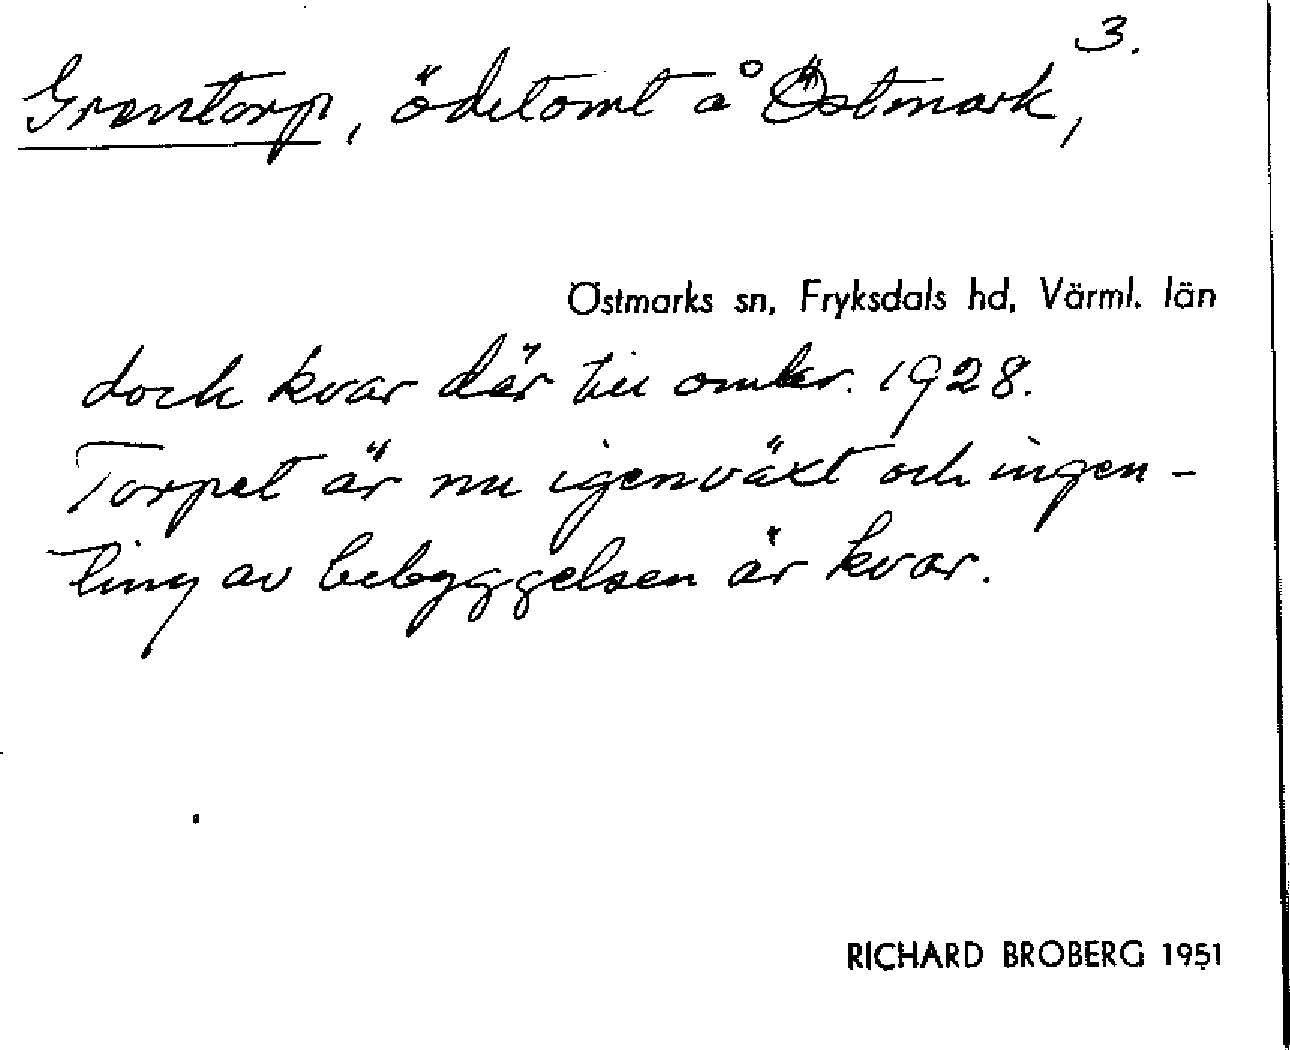 3.
Grantorp, ödetomt å Östmark,
Östmarks sn, Fryksdals hd, Värml. län
dock kvar där till omkr. 1928.
Torpet är nu igenväxt och ingen-
ting av bebyggelsen är kvar.
RICHARD BROBERG 1951